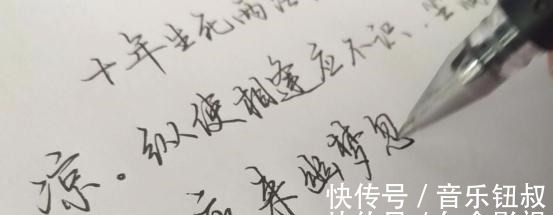 十年生死两
凉。纵使相逢应不识、尘
来幽梦忽
快传号 / 音乐钮叔